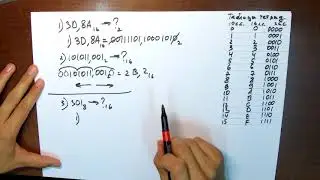 1) 3D,8A₁₆ → ?₂
1) 3D,8A₁₆ = 00111101,10001010₂
2) 101011,001₂ → ?₁₆
00101011,0010₂ = 2B,2₁₆
3) 301₈ → ?₁₆
1)
Тадиода тетрад
10cc 16cc 2cc
0 0 0000
1 1 0001
2 2 0010
3 3 0011
4 4 0100
5 5 0101
6 6 0110
7 7 0111
8 8 1000
9 9 1001
10 A 1010
11 B 1011
12 C 1100
13 D 1101
14 E 1110
15 F 1111